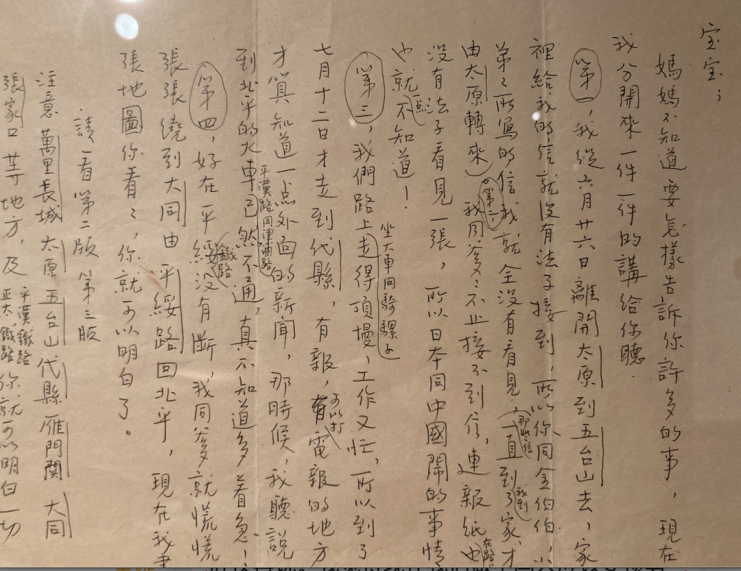 宝宝；
媽媽不知道要怎樣告訴你許多的事，現在
我分開來一件一件的講給你聽
第一，我從六月廿六日離開太原到五台山去，家
裡給我的信就沒有法子接到，所以你同金伯伯，小
弟弟所寫的信我就全沒有看見，（那些信一直到我到了家，才
由太原轉來）
第二，我同爹爹不止接不到信，連報紙也在路
沒有法子看見一張，所以日本同中國鬧的事情
也就一点不知道！
第三，我們路上坐大車同騎騾子走得頂慢，工作又忙，所以到了
七月十二日才走到代縣，有報，可以打電報的地方
才算知道一点外面的新聞，那時候，我聽説
到北平的火車平漢路同津浦路已然不通，真不知道多着急；
第四，好在平綏鐵路沒有斷，我同爹爹就慌慌
張張繞到大同由平綏路回北平，現在我
張地圖你看看，你就可以明白了。
請看第二版 第三版
注意萬里長城太原五台山代縣雁門關 大同
張家口等地方，及平漢鐵路正太鐵路你就可以明白一切